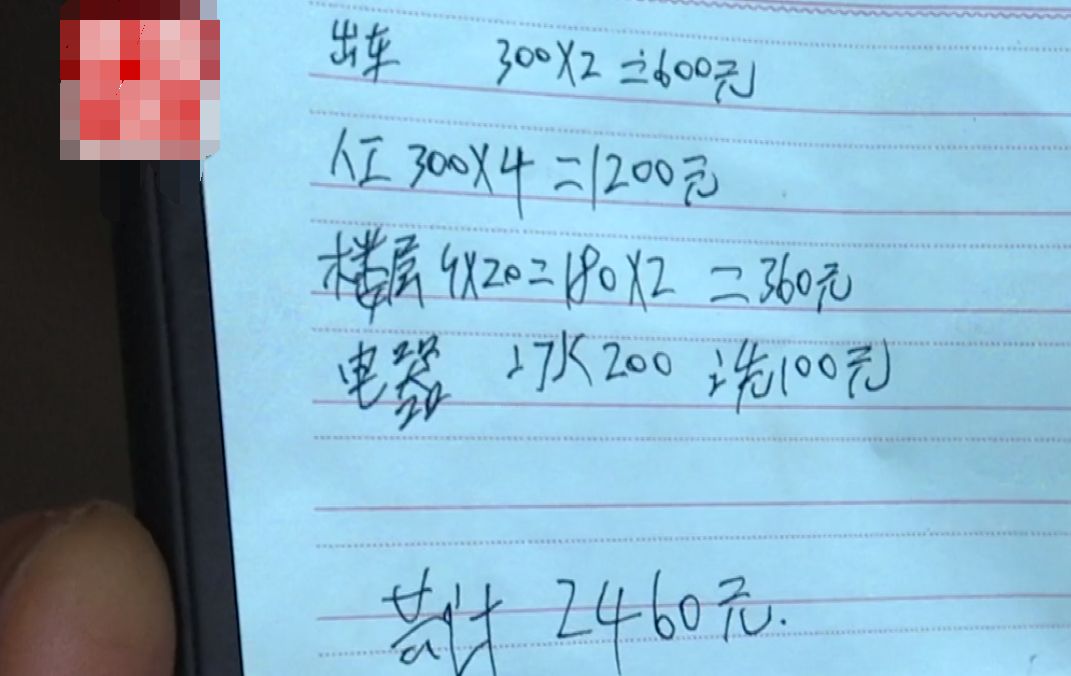 出车 300×2=600元
人工 300×4=1200元
楼层 9×20=180×2=360元
电器 冰200 洗100元
共计 2460元.